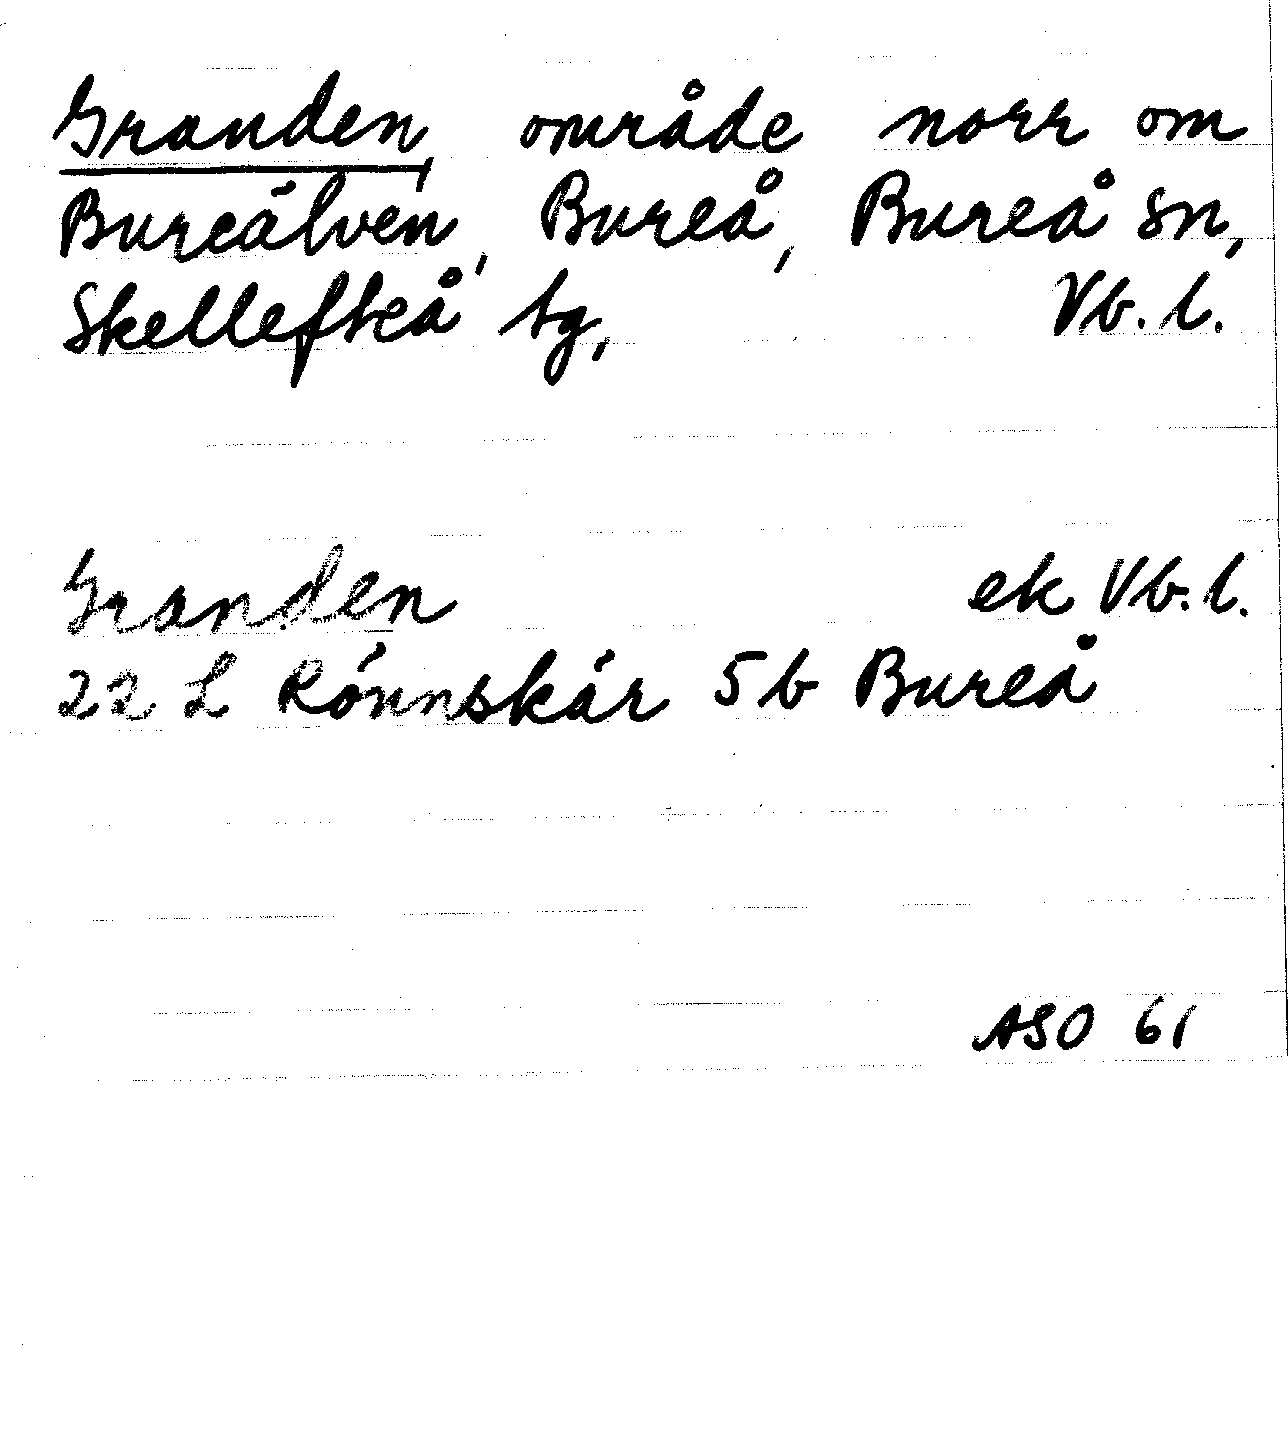 Granden, område norr om
Bureälven, Bureå, Bureå sn,
Skellefteå tg, Vb. l.
Granden ek Vb. l.
22 L Rönnskär 5b Bureå
ASO 61